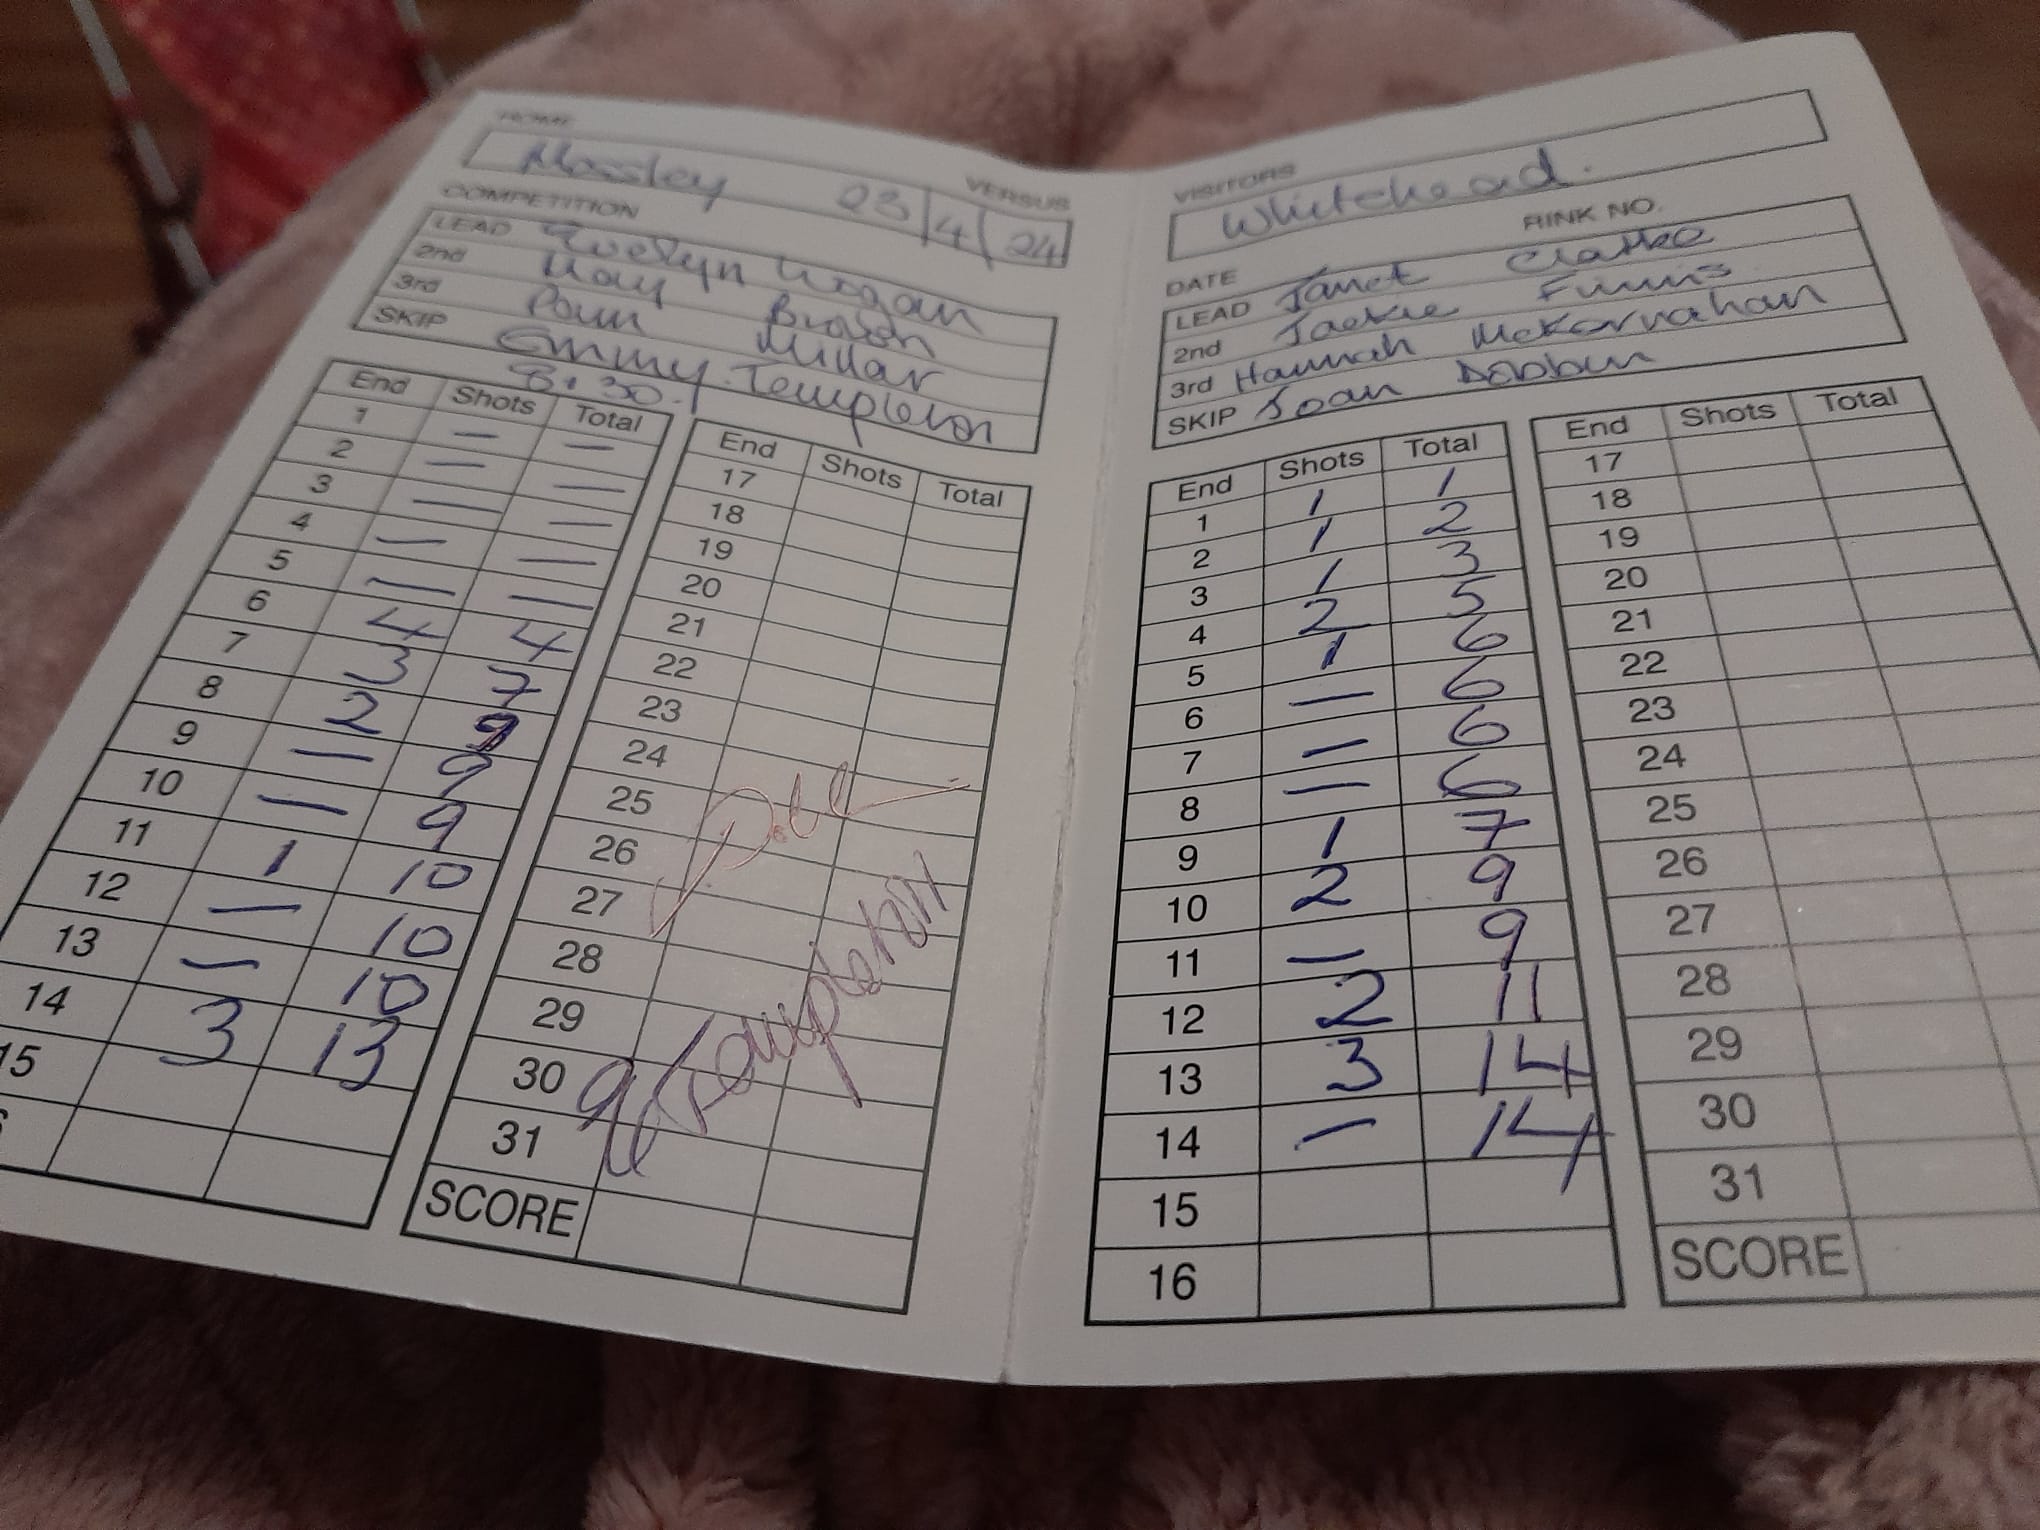 HOME
Mossley 23/4/24
VERSUS
COMPETITION
LEAD Evelyn Wogan
2nd May Brown
3rd Pam Millar
SKIP Emmy Templeton
8.30.
End Shots Total
1 — —
2 — —
3 — —
4 — —
5 — —
6 4 4
7 3 7
8 2 9
9 — 9
10 — 9
11 1 10
12 — 10
13 — 10
14 3 13
15
End Shots Total
17
18
19
20
21
22
23
24
25
26
27
28
29
30
31
SCORE
VISITORS
Whitehead.
RINK NO.
DATE
LEAD Janet Clarke
2nd Jackie
3rd Hannah McKernahan
SKIP Joan Dobbin
End Shots Total
1 1 1
2 1 2
3 1 3
4 2 5
5 1 6
6 — 6
7 — 6
8 — 6
9 1 7
10 2 9
11 — 9
12 2 11
13 3 14
14 — 14
15
16
End Shots Total
17
18
19
20
21
22
23
24
25
26
27
28
29
30
31
SCORE